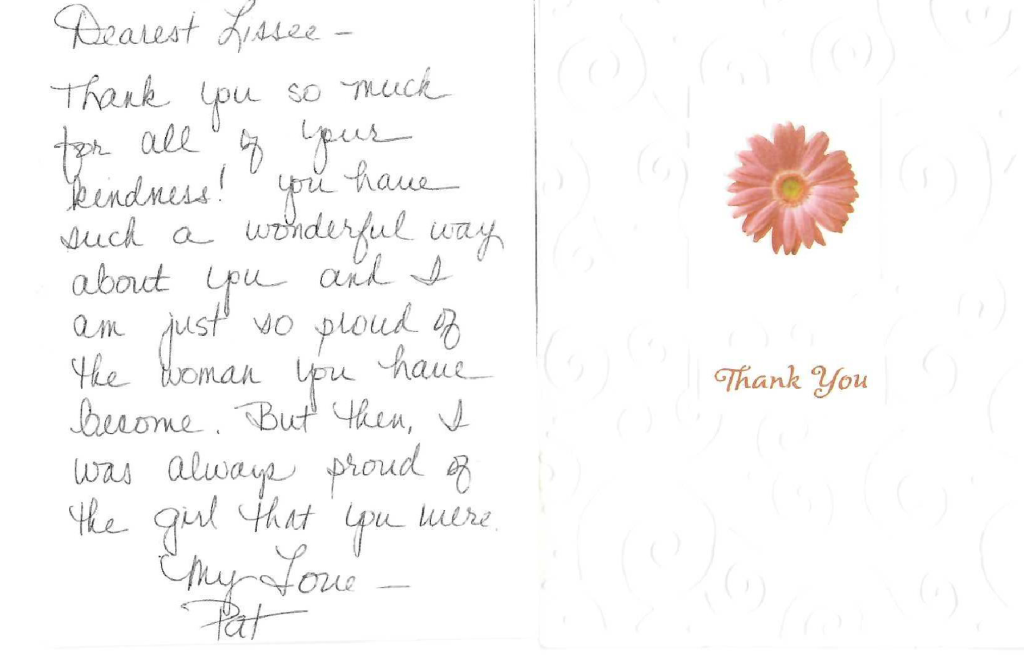 Dearest Lissee -
Thank you so much
for all of your
kindness! You have
such a wonderful way
about you and I
am just so proud of
the woman you have
become. But then, I
was always proud of
the girl that you were.
My Love -
Pat
Thank You